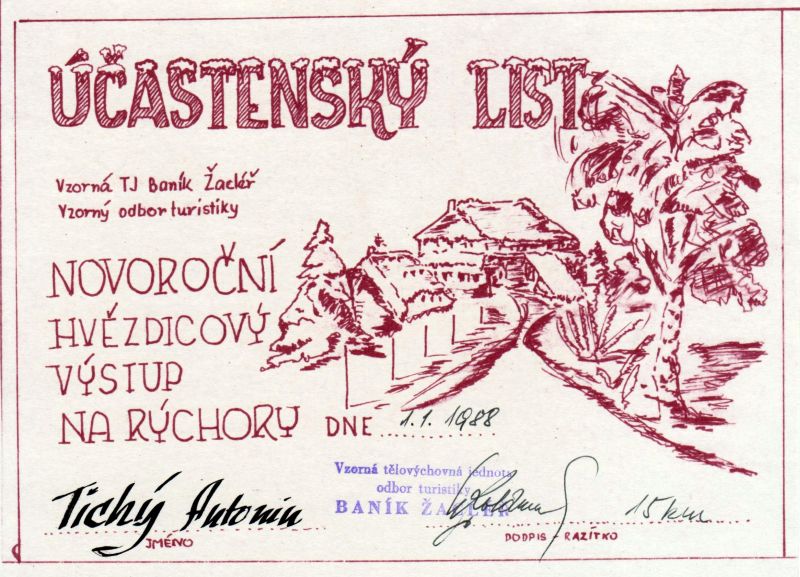 ÚČASTENSKÝ LIST
Vzorná TJ Baník Žacléř
Vzorný odbor turistiky
NOVOROČNÍ
HVĚZDICOVÝ
VÝSTUP
NA RÝCHORY DNE 1.1. 1988
Vzorná tělovýchovná jednota
odbor turistiky
BANÍK ŽACLÉŘ
Tichý Antonín 15 km
JMÉNO PODPIS - RAZÍTKO